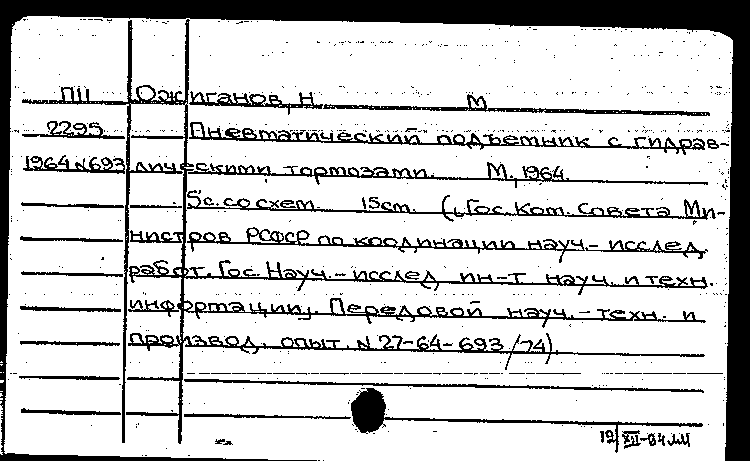 П11 Ожиганов, Н. М.
2295 Пневматический подъемник с гидрав-
1964 N693 лическими тормозами. М., 1964.
5с. со схем. 15см. (Гос. Ком. Совета Ми-
нистров РСФСР по коодинации науч.-исслед.
работ. Гос. Науч.-исслед. ин-т науч. и техн.
информации. Передовой науч.-техн. и
производ. опыт. N 27-64-693/74).